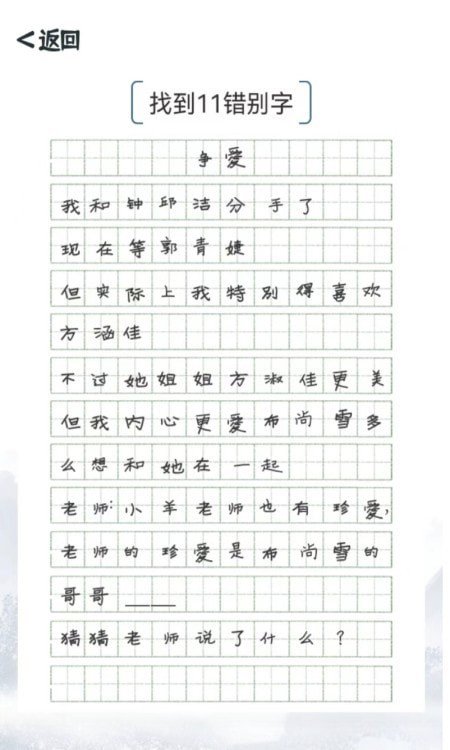 <返回
找到11错别字
争愛
我和钟邱洁分手了
现在等郭青婕
但实际上我特别得喜欢
方涵佳
不过她姐姐方淑佳更美
但我内心更爱布尚雪多
么想和她在一起
老师:小羊老师也有珍爱,
老师的珍爱是布尚雪的
哥哥____
猜猜老师说了什么?